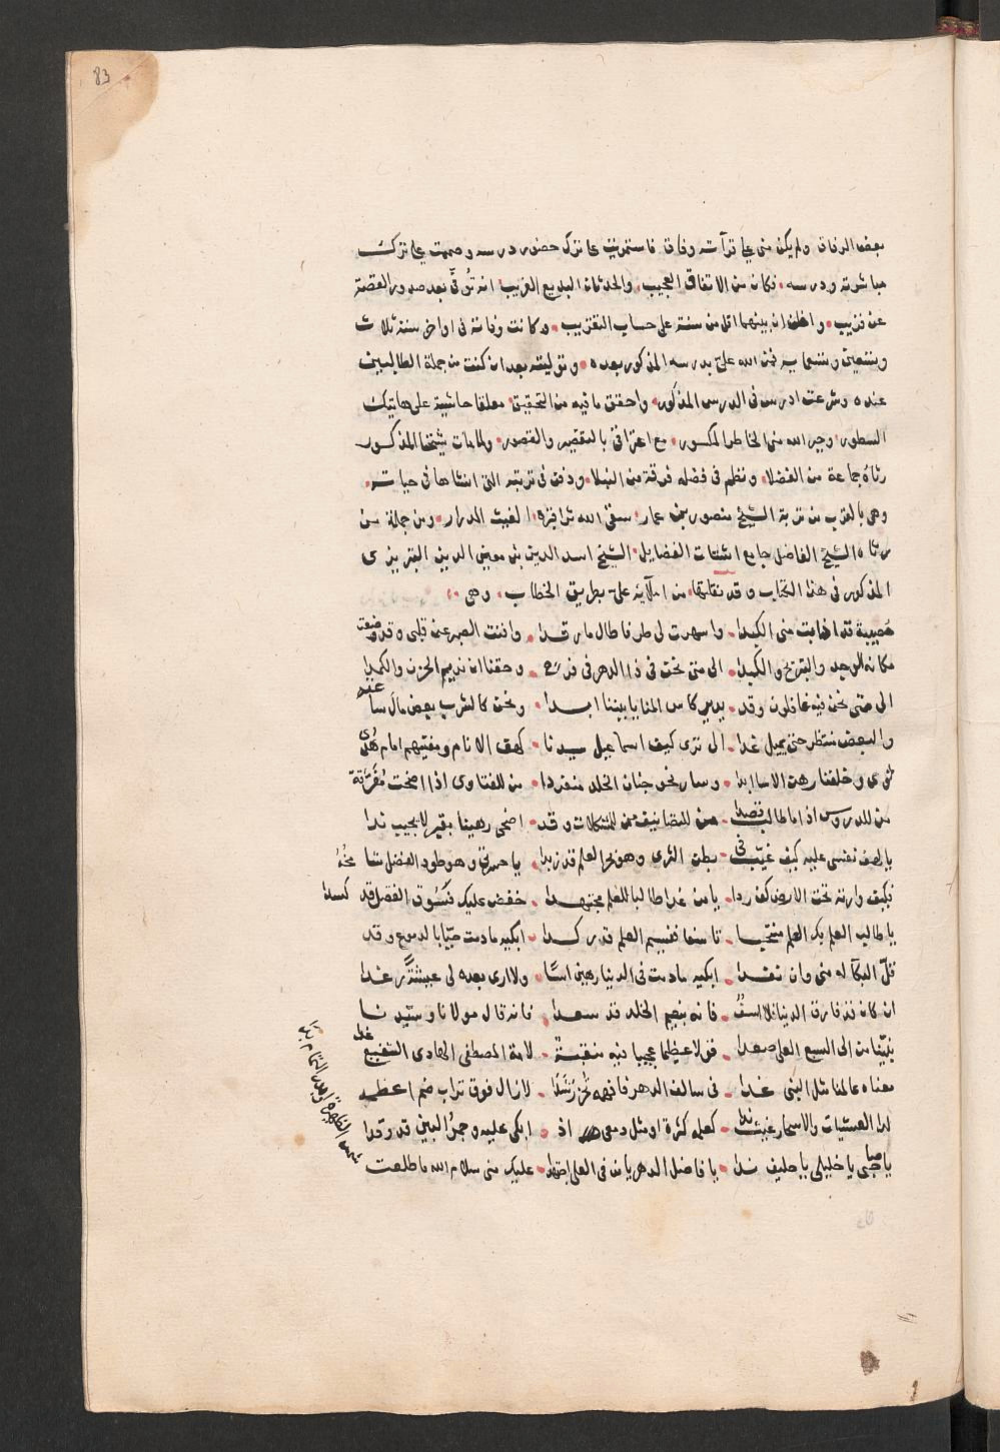 83
بعض الرفاق ولم يكن مني على قرآته وفاق فاستمريت على ترك حضور درسه وصممت على ترك
مباشرته ودرسه فكان من الاتفاق العجيب والحدثان البديع الغريب انه تُوفّي بعد صدور القصة
عن قريب واظن ان بينهما اقل من سنة على حساب التقريب وكانت وفاته في اواخر سنة ثلاث
وتسعين وتسعماية فمن الله عليّ بدرسه المذكور بعده وتوليته بعد ان كنت من جملة الطالبين
عنده وشرعت ادرس في الدرس المذكور واحقق ما فيه من التحقيق معلقا حاشية على هاتيك
السطور وجبر الله مني الخاطر المكسور مع اعترافي بالتقصير والقصور ولما مات شيخنا المذكور
رثاه جماعة من الفضلا ونظم في فضله فرقة من النبلا ودفن في تربته التي انشاها في حياته
وهي بالقرب من تربة الشيخ منصور بن عمار سقى الله ثراه الغيث المدرار ومن جملة من
رثاه الشيخ الفاضل جامع اشتات الفضايل الشيخ اسد الدين بن معين الدين التبريزي
المذكور في هذا الكتاب وقد نقلتها من املآيه عليّ بطريق الخطاب وهي
مصيبة قد اذابت مني الكبدا واسهرت لي طرفا طال ما رقدا وافنت الصبر عن قلبي وقد وضعت
مكانه الوجد والتبريح والكبدا الى متى نحن في ذا الدهر في وحقنا ان نديم الحزن والكمدا
الى متى نحن فيه غافلون وقد يدير كاس المنايا بيننا ابدا ونحن كالشرب بعض مال ساعته
والبعض منتظر حتى يميل غدا ال ترى كيف اسماعيل سيدنا كهف الانام ومفتيهم امام هُدى
ثوى وخلفنا رهن الاسا ابدا وسار نحو جنان الخلد منفردا من للفتاوى اذا اضحت مُفرّقة
من للدروس اذا ما طالب قصدا من للتصانيف من للمشكلات وقد اضحى رهينا بقبر لا يجيب ندا
يا لهف نفسي عليه كيف غيّب في بطن الثرى وهو بحر العلم قد زبدا يا حسرتي وهو طود الفضل شامخُهُ
فكيف وارته تحت الارض كف ردا يا من غدا طالبا للعلم مجتهدا خفض عليك فسُوق الفضل قد كسدا
يا طالب العلم بكّ العلم منتحبا تاسفا فنسيم العلم قد ركدا ابكيه ما دمت حيّا بالدموع وقد
قلّ البكآ له مني وان نفدا ابكيه ما دمت في الدنيا رهين اسًا ولا ارى بعده لي عيشةً رغدا
ان كان قد فارق الدنيا فلا اسفٌ فانه بنعيم الخلد قد سعدا فانه قال مولانا وسيّدنا
نبيّنا من الى السبع العلى صعدا قولا عظيما عجيبا فيه منقبة لامة المصطفى الهادي الشفيع غدا
معناه عالمنا مثل النبي غدا في سالف الدهر فافهمه تحُز رَشَدَا لازال فوق تراب ضم اعظمه
لدا العشيات والاسحار غيث ندا كعلمه كثرة او مثل دمعي اذ ابكي عليه وجمرُ البين قد وقدا
يا صاحبي يا خليلي يا حليف ندا يا فاضل الدهر يا من في العلى اجتهدا عليك مني سلام الله ما طلعت
شمس